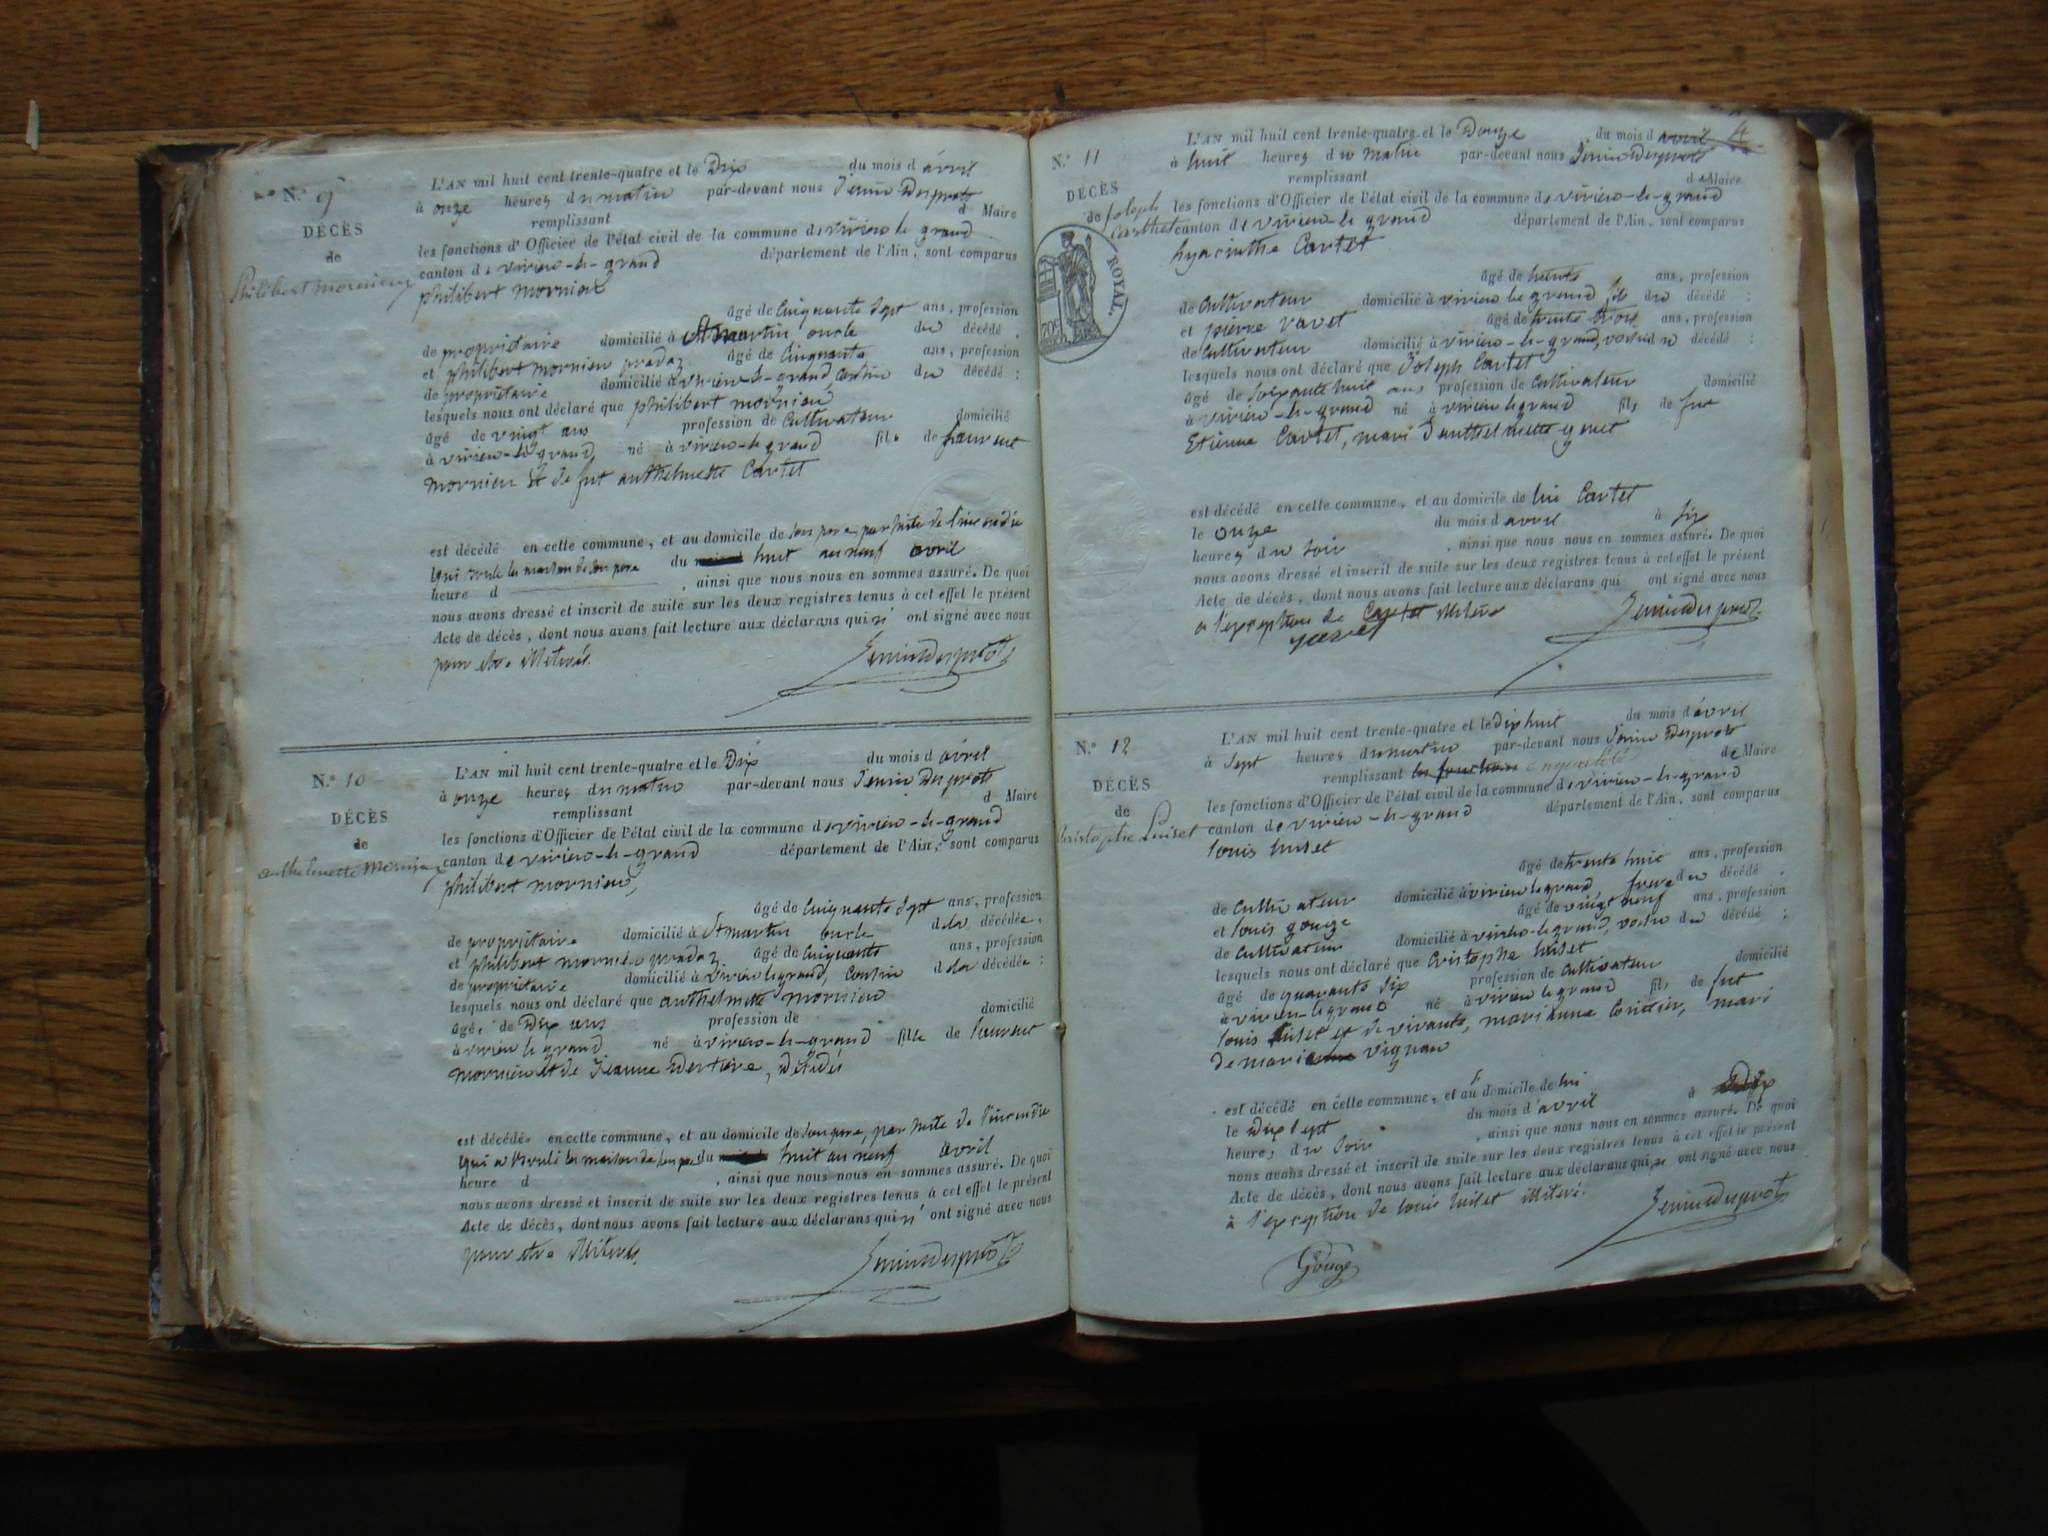 N.º 9
DÉCÈS
de
Philibert Mornieux
L'AN mil huit cent trente-quatre et le Dix du mois d avril
à onze heures du matin par-devant nous Jenin Desprots
remplissant d Maire
les fonctions d'Officier de l'état civil de la commune de virieu le grand
canton de virieu-le-grand département de l'Ain, sont comparus
philibert mornieu
âgé de Cinquante Sept ans, profession
de propriétaire domicilié à St martin du décédé,
et philibert mornieu pradaz âgé de Cinquante ans, profession
de propriétaire domicilié à virieu-le-grand, Cousin du décédé :
lesquels nous ont déclaré que philibert mornieu
âgé de vingt ans profession de Cultivateur domicilié
à virieu-le-grand né à virieu-le-grand fils de Laurent
mornieu et de fut anthelmette Cartet
est décédé en cette commune, et au domicile de son pere, par suite de l'incendie
qui brulé la maison de son pere du huit au neuf avril
heure d , ainsi que nous nous en sommes assuré. De quoi
nous avons dressé et inscrit de suite sur les deux registres tenus à cet effet le présent
Acte de décès, dont nous avons fait lecture aux déclarans qui n' ont signé avec nous
pour etre illiterés.
Jenin Desprots
N.º 10
DÉCÈS
de
anthelmette Mornieux
L'AN mil huit cent trente-quatre et le Dix du mois d avril
à onze heures du matin par-devant nous Jenin Desprots
remplissant d Maire
les fonctions d'Officier de l'état civil de la commune de virieu-le-grand
canton de virieu-le-grand département de l'Ain, sont comparus
philibert mornieu,
âgé de Cinquante Sept ans, profession
de propriétaire domicilié à St martin de la décédée,
et philibert mornieu pradaz âgé de Cinquante ans, profession
de propriétaire domicilié à virieu le grand, Cousin de la décédée :
lesquels nous ont déclaré que anthelmette mornieu
âgée de Dix ans profession de domicilié
à virieu le grand né à virieu-le-grand fille de Laurent
mornieu et de Jeanne , Décédés
est décédée en cette commune, et au domicile de son pere, par suite de l'incendie
qui a brulé la maison de son pere du huit au neuf avril
heure d , ainsi que nous nous en sommes assuré. De quoi
nous avons dressé et inscrit de suite sur les deux registres tenus à cet effet le présent
Acte de décès, dont nous avons fait lecture aux déclarans qui n' ont signé avec nous
pour etre illiterés.
Jenin Desprots
N.º 11
DÉCÈS
de Joseph
Carthet
ROYAL.
70c
L'AN mil huit cent trente-quatre et le Douze du mois d avril 4
à huit heures du matin par-devant nous Jenin Desprots
remplissant de Maire
les fonctions d'Officier de l'état civil de la commune de virieu-le-grand
canton de virieu-le-grand département de l'Ain, sont comparus
hyacinthe Cartet
âgé de trente ans, profession
de Cultivateur domicilié à virieu le grand fils du décédé :
et pierre âgé de trente trois ans, profession
de Cultivateur domicilié à virieu-le-grand, voisin du décédé :
lesquels nous ont déclaré que Joseph Cartet
âgé de soixante huit ans profession de Cultivateur domicilié
à virieu-le-grand né à virieu le grand fils de fut
Etienne Cartet, mari d'anthelmette
est décédé en cette commune, et au domicile de lui Cartet
le onze du mois d avril à six
heures du soir , ainsi que nous nous en sommes assuré. De quoi
nous avons dressé et inscrit de suite sur les deux registres tenus à cet effet le présent
Acte de décès, dont nous avons fait lecture aux déclarans qui ont signé avec nous
a l'exception de Cartet illiteré
Jenin Desprots
N.º 12
DÉCÈS
de
Christophe Luiset
L'AN mil huit cent trente-quatre et le dix huit du mois d'avril
à sept heures du matin par-devant nous Jenin Desprots
remplissant les fonctions de Maire
les fonctions d'Officier de l'état civil de la commune de virieu-le-grand
canton de virieu-le-grand département de l'Ain, sont comparus
louis luiset
âgé de trente huit ans, profession
de Cultivateur domicilié à virieu le grand, frere du décédé,
et louis gouge âgé de vingt neuf ans, profession
de Cultivateur domicilié à virieu-le-grand, voisin du décédé ;
lesquels nous ont déclaré que Cristophe luiset
âgé de quarante six profession de Cultivateur domicilié
à virieu-le-grand né à virieu le grand fils de fut
louis luiset et de vivante, marianne , mari
de marie vignau
est décédé en cette commune, et au domicile de lui
le Dix sept du mois d'avril à Dix
heures du soir , ainsi que nous nous en sommes assuré. De quoi
nous avons dressé et inscrit de suite sur les deux registres tenus à cet effet le présent
Acte de décès, dont nous avons fait lecture aux déclarans qui ont signé avec nous
à l'exception de louis luiset illiteré.
Jenin Desprots
Gouge